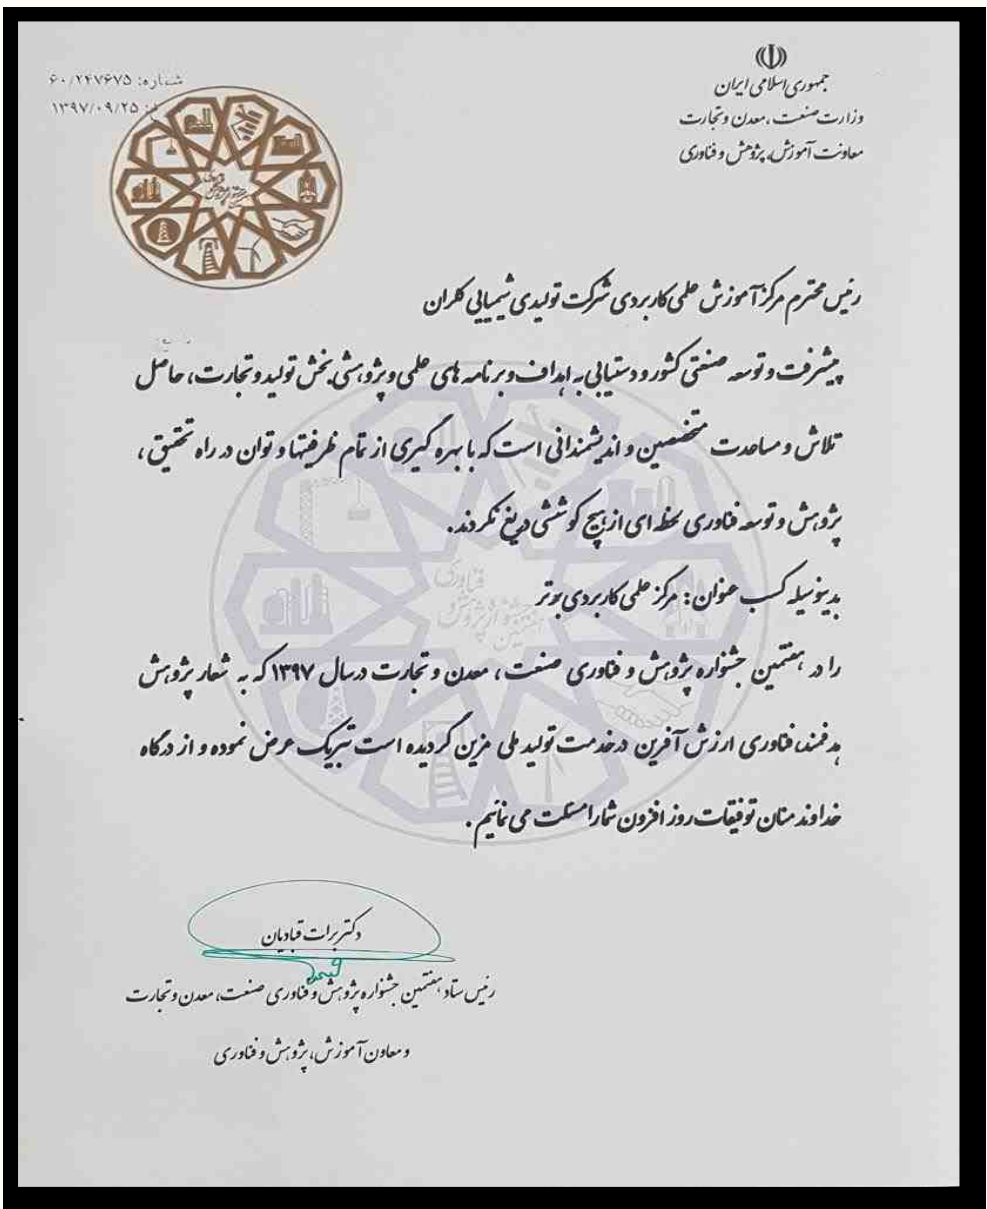 جمهوری اسلامی ایران
وزارت صنعت، معدن و تجارت
معاونت آموزش، پژوهش و فناوری
شماره: ۶۰/۲۴۷۶۷۵
۱۳۹۷/۰۹/۲۵
رئیس محترم مرکز آموزش علمی کاربردی شرکت تولیدی شیمیایی کلران
پیشرفت و توسعه صنعتی کشور و دستیابی به اهداف و برنامه های علمی و پژوهشی بخش تولید و تجارت، حاصل
تلاش و مساعدت متخصصین و اندیشمندانی است که با بهره گیری از تمام ظرفیتها و توان در راه تحقیق،
پژوهش و توسعه فناوری لحظه ای از هیچ کوششی دریغ نکردند.
بدینوسیله کسب عنوان: مرکز علمی کاربردی برتر
را در هفتمین جشنواره پژوهش و فناوری صنعت، معدن و تجارت درسال ۱۳۹۷ که به شعار پژوهش
هدفمند، فناوری ارزش آفرین درخدمت تولید ملی مزین گردیده است تبریک عرض نموده و از درگاه
خداوند منان توفیقات روز افزون شما را مسئلت می نمائیم.
دکتر برات قبادیان
رئیس ستاد هفتمین جشنواره پژوهش و فناوری صنعت، معدن و تجارت
و معاون آموزش، پژوهش و فناوری